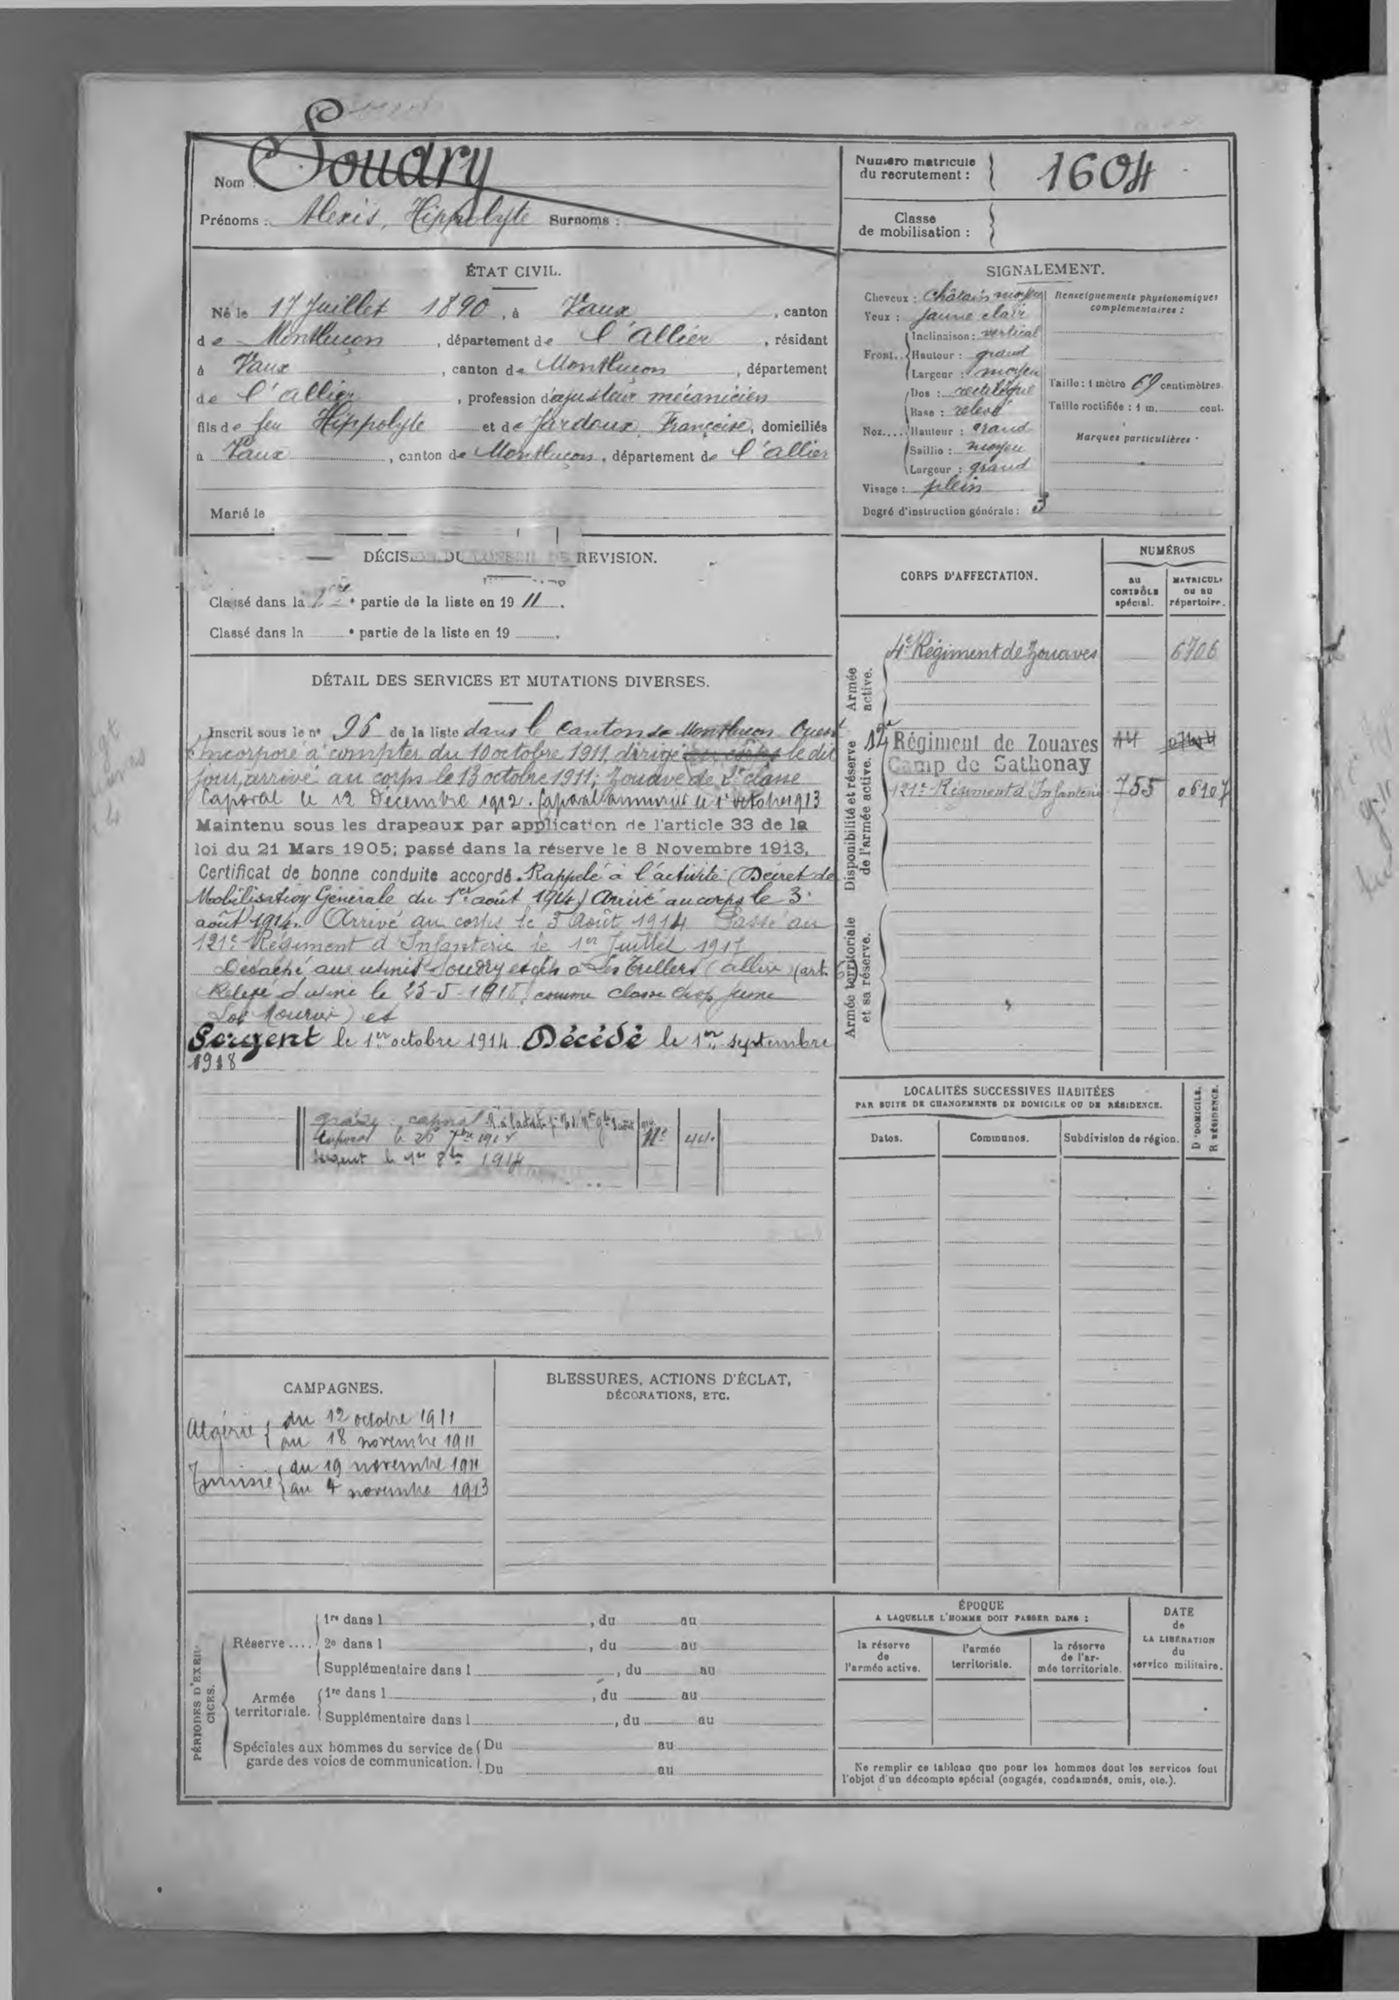 Nom : Soudry
Prénoms : Alexis, Hippolyte Surnoms :
Numéro matricule du recrutement : 1604
Classe de mobilisation :
ÉTAT CIVIL.
Né le 17 Juillet 1890, à Vaux, canton
de Montluçon, département de l'Allier, résidant
à Vaux, canton de Montluçon, département
de l'Allier, profession d'ajusteur mécanicien
fils de feu Hippolyte et de Jardoux, Françoise, domiciliés
à Vaux, canton de Montluçon, département de l'Allier
Marié le
SIGNALEMENT.
Cheveux : châtain moyen
Yeux : jaune clair
Front.. Inclinaison : vertical
Hauteur : grand
Largeur : moyen
Nez.... Dos : rectiligne
Base : relevé
Hauteur : grand
Saillie : moyen
Largeur : grand
Visage : plein
Renseignements physionomiques complémentaires :
Taille : 1 mètre 69 centimètres.
Taille rectifiée : 1 m. cent.
Marques particulières :
Degré d'instruction générale : 3
DÉCISION DU CONSEIL DE REVISION.
Classé dans la 1re partie de la liste en 1911.
Classé dans la • partie de la liste en 19 .
DÉTAIL DES SERVICES ET MUTATIONS DIVERSES.
Inscrit sous le n° 96 de la liste dans le canton de Montluçon Ouest
Incorporé à compter du 10 octobre 1911, dirigé au corps le dit
jour, arrivé au corps le 13 octobre 1911; Zouave de 2e classe
Caporal le 12 Décembre 1912. Caporal le 1er octobre 1913
Maintenu sous les drapeaux par application de l'article 33 de la
loi du 21 Mars 1905; passé dans la réserve le 8 Novembre 1913.
Certificat de bonne conduite accordé. Rappelé à l'activité (Décret de
Mobilisation Générale du 1er août 1914) Arrivé au corps le 3
août 1914. Arrivé au corps le 3 Août 1914 Passé au
121e Régiment d'Infanterie le 1er Juillet 1917
Détaché aux usines Soudry à Les Trillers (Allier) (art. 6)
Relevé d'usine le 25-5-1918 comme classe trop jeune
Loi Mourier) et
Sergent le 1er octobre 1914. Décédé le 1er septembre
1918
Caporal le 26 7bre 1914
Sergent le 1er 8bre 1914
44
CORPS D'AFFECTATION.
NUMÉROS
AU CONTRÔLE spécial.
MATRICULE OU AU répertoire.
Armée active.
4e Régiment de Zouaves 6706
Disponibilité et réserve de l'armée active.
14e Régiment de Zouaves 44
Camp de Sathonay
121e Régiment d'Infanterie 755 06107
Armée territoriale et sa réserve.
LOCALITÉS SUCCESSIVES HABITÉES
PAR SUITE DE CHANGEMENTS DE DOMICILE OU DE RÉSIDENCE.
Dates.
Communes.
Subdivision de région.
D DOMICILE.
R RÉSIDENCE.
CAMPAGNES.
Algérie du 12 octobre 1911
au 18 novembre 1911
Tunisie du 19 novembre 1911
au 4 novembre 1913
BLESSURES, ACTIONS D'ÉCLAT,
DÉCORATIONS, ETC.
PÉRIODES D'EXERCICES.
Réserve.... 1re dans l , du au
2e dans l , du au
Supplémentaire dans l , du au
Armée territoriale. 1re dans l , du au
Supplémentaire dans l , du au
Spéciales aux hommes du service de garde des voies de communication. Du au
Du au
ÉPOQUE
A LAQUELLE L'HOMME DOIT PASSER DANS :
la réserve de l'armée active.
l'armée territoriale.
la réserve de l'armée territoriale.
DATE de LA LIBÉRATION du service militaire.
Ne remplir ce tableau que pour les hommes dont les services font
l'objet d'un décompte spécial (engagés, condamnés, omis, etc.).